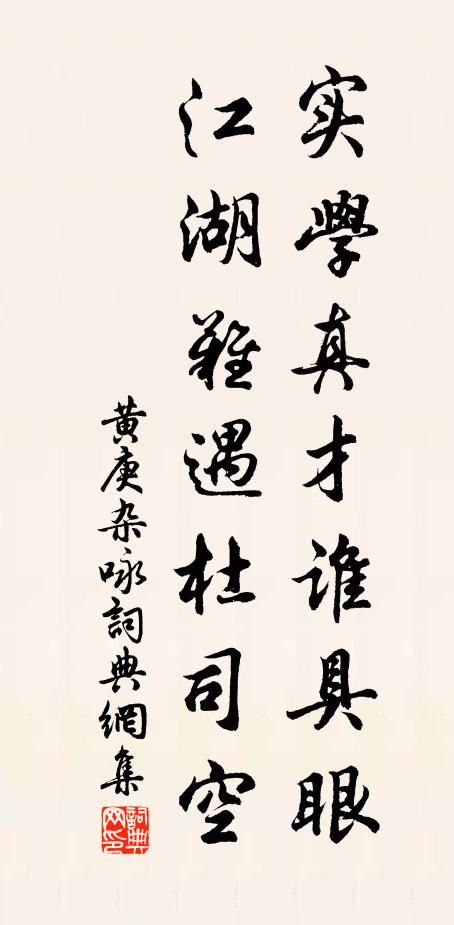 实學真才谁具眼
江湖難遇杜司空
黄庚杂咏詞典網集
詞典网印